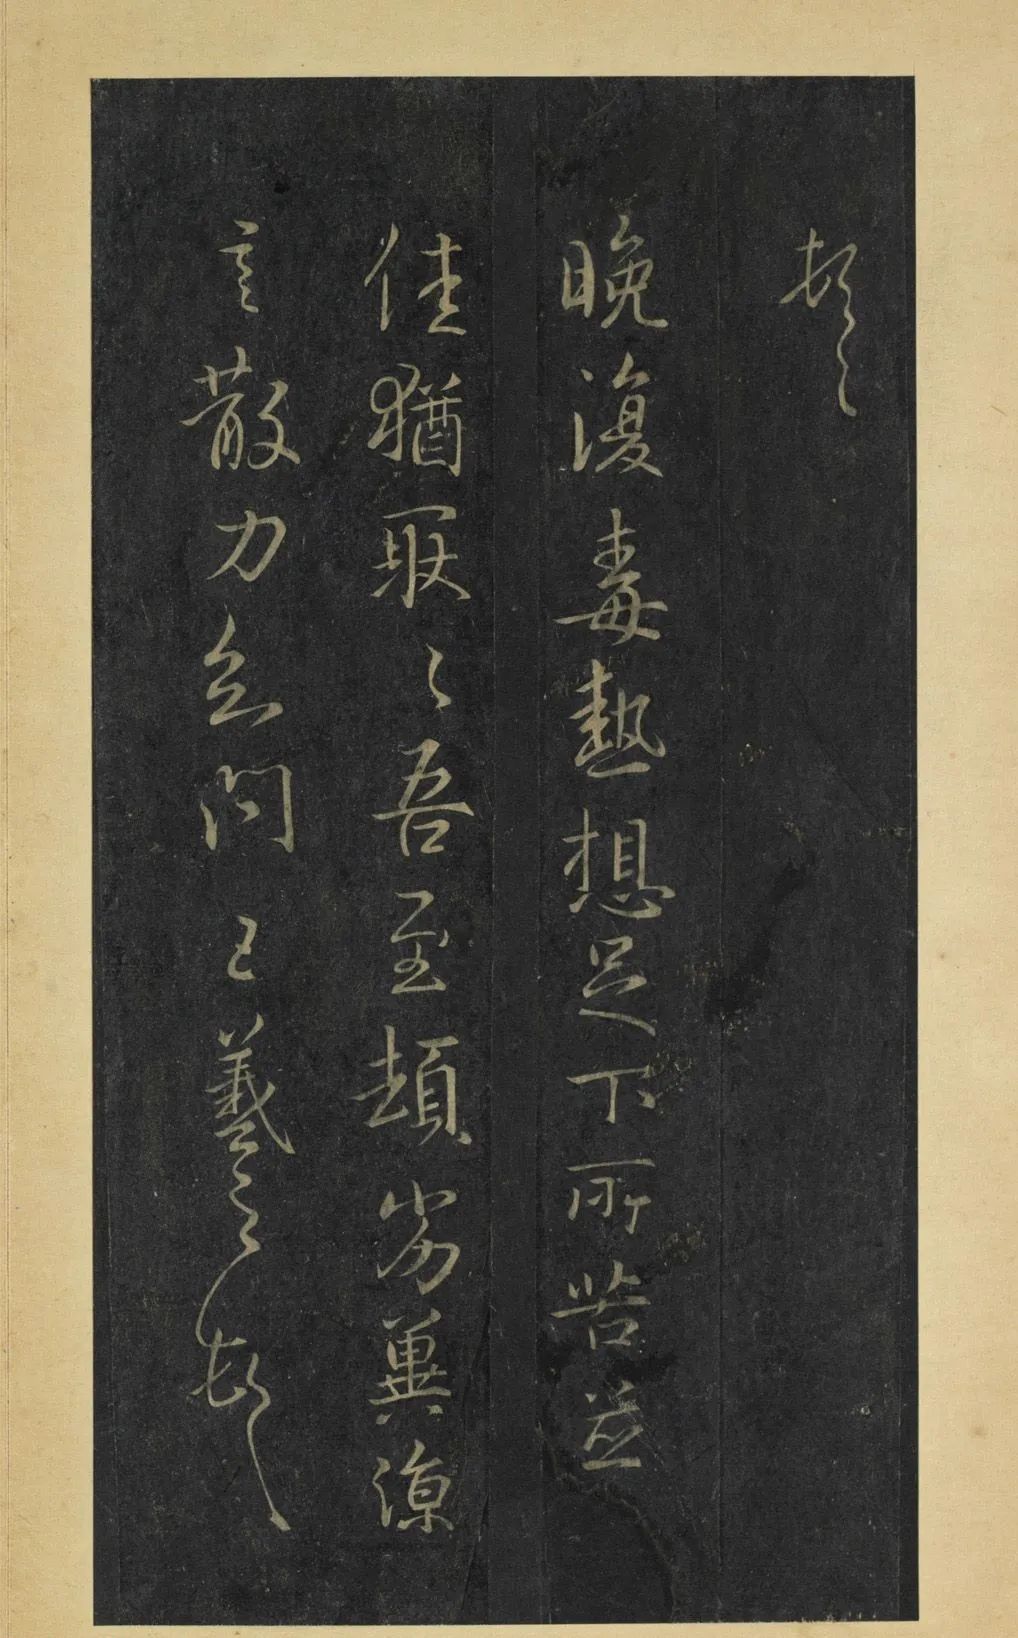 頓首
晚復毒熱想足下所苦並
佳猶耿〻吾至頓劣冀涼
言散力知問王羲之頓首